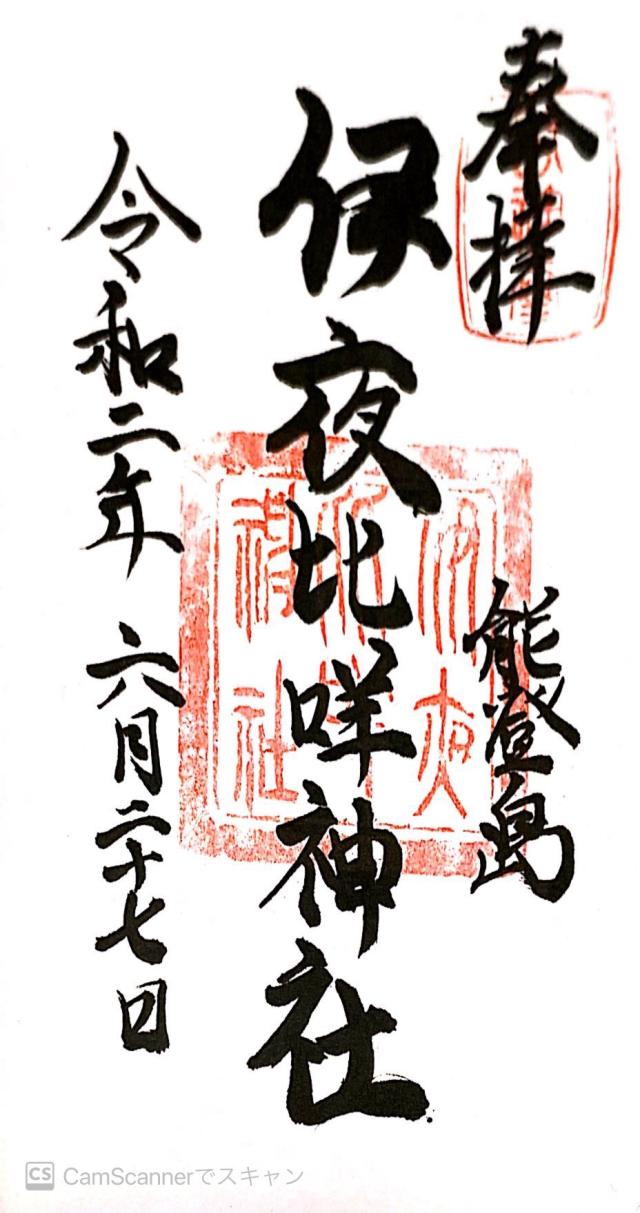 奉拝
能登島
伊夜比咩神社
令和二年 六月二十七日
伊夜
比咩
神社
CS CamScannerでスキャン